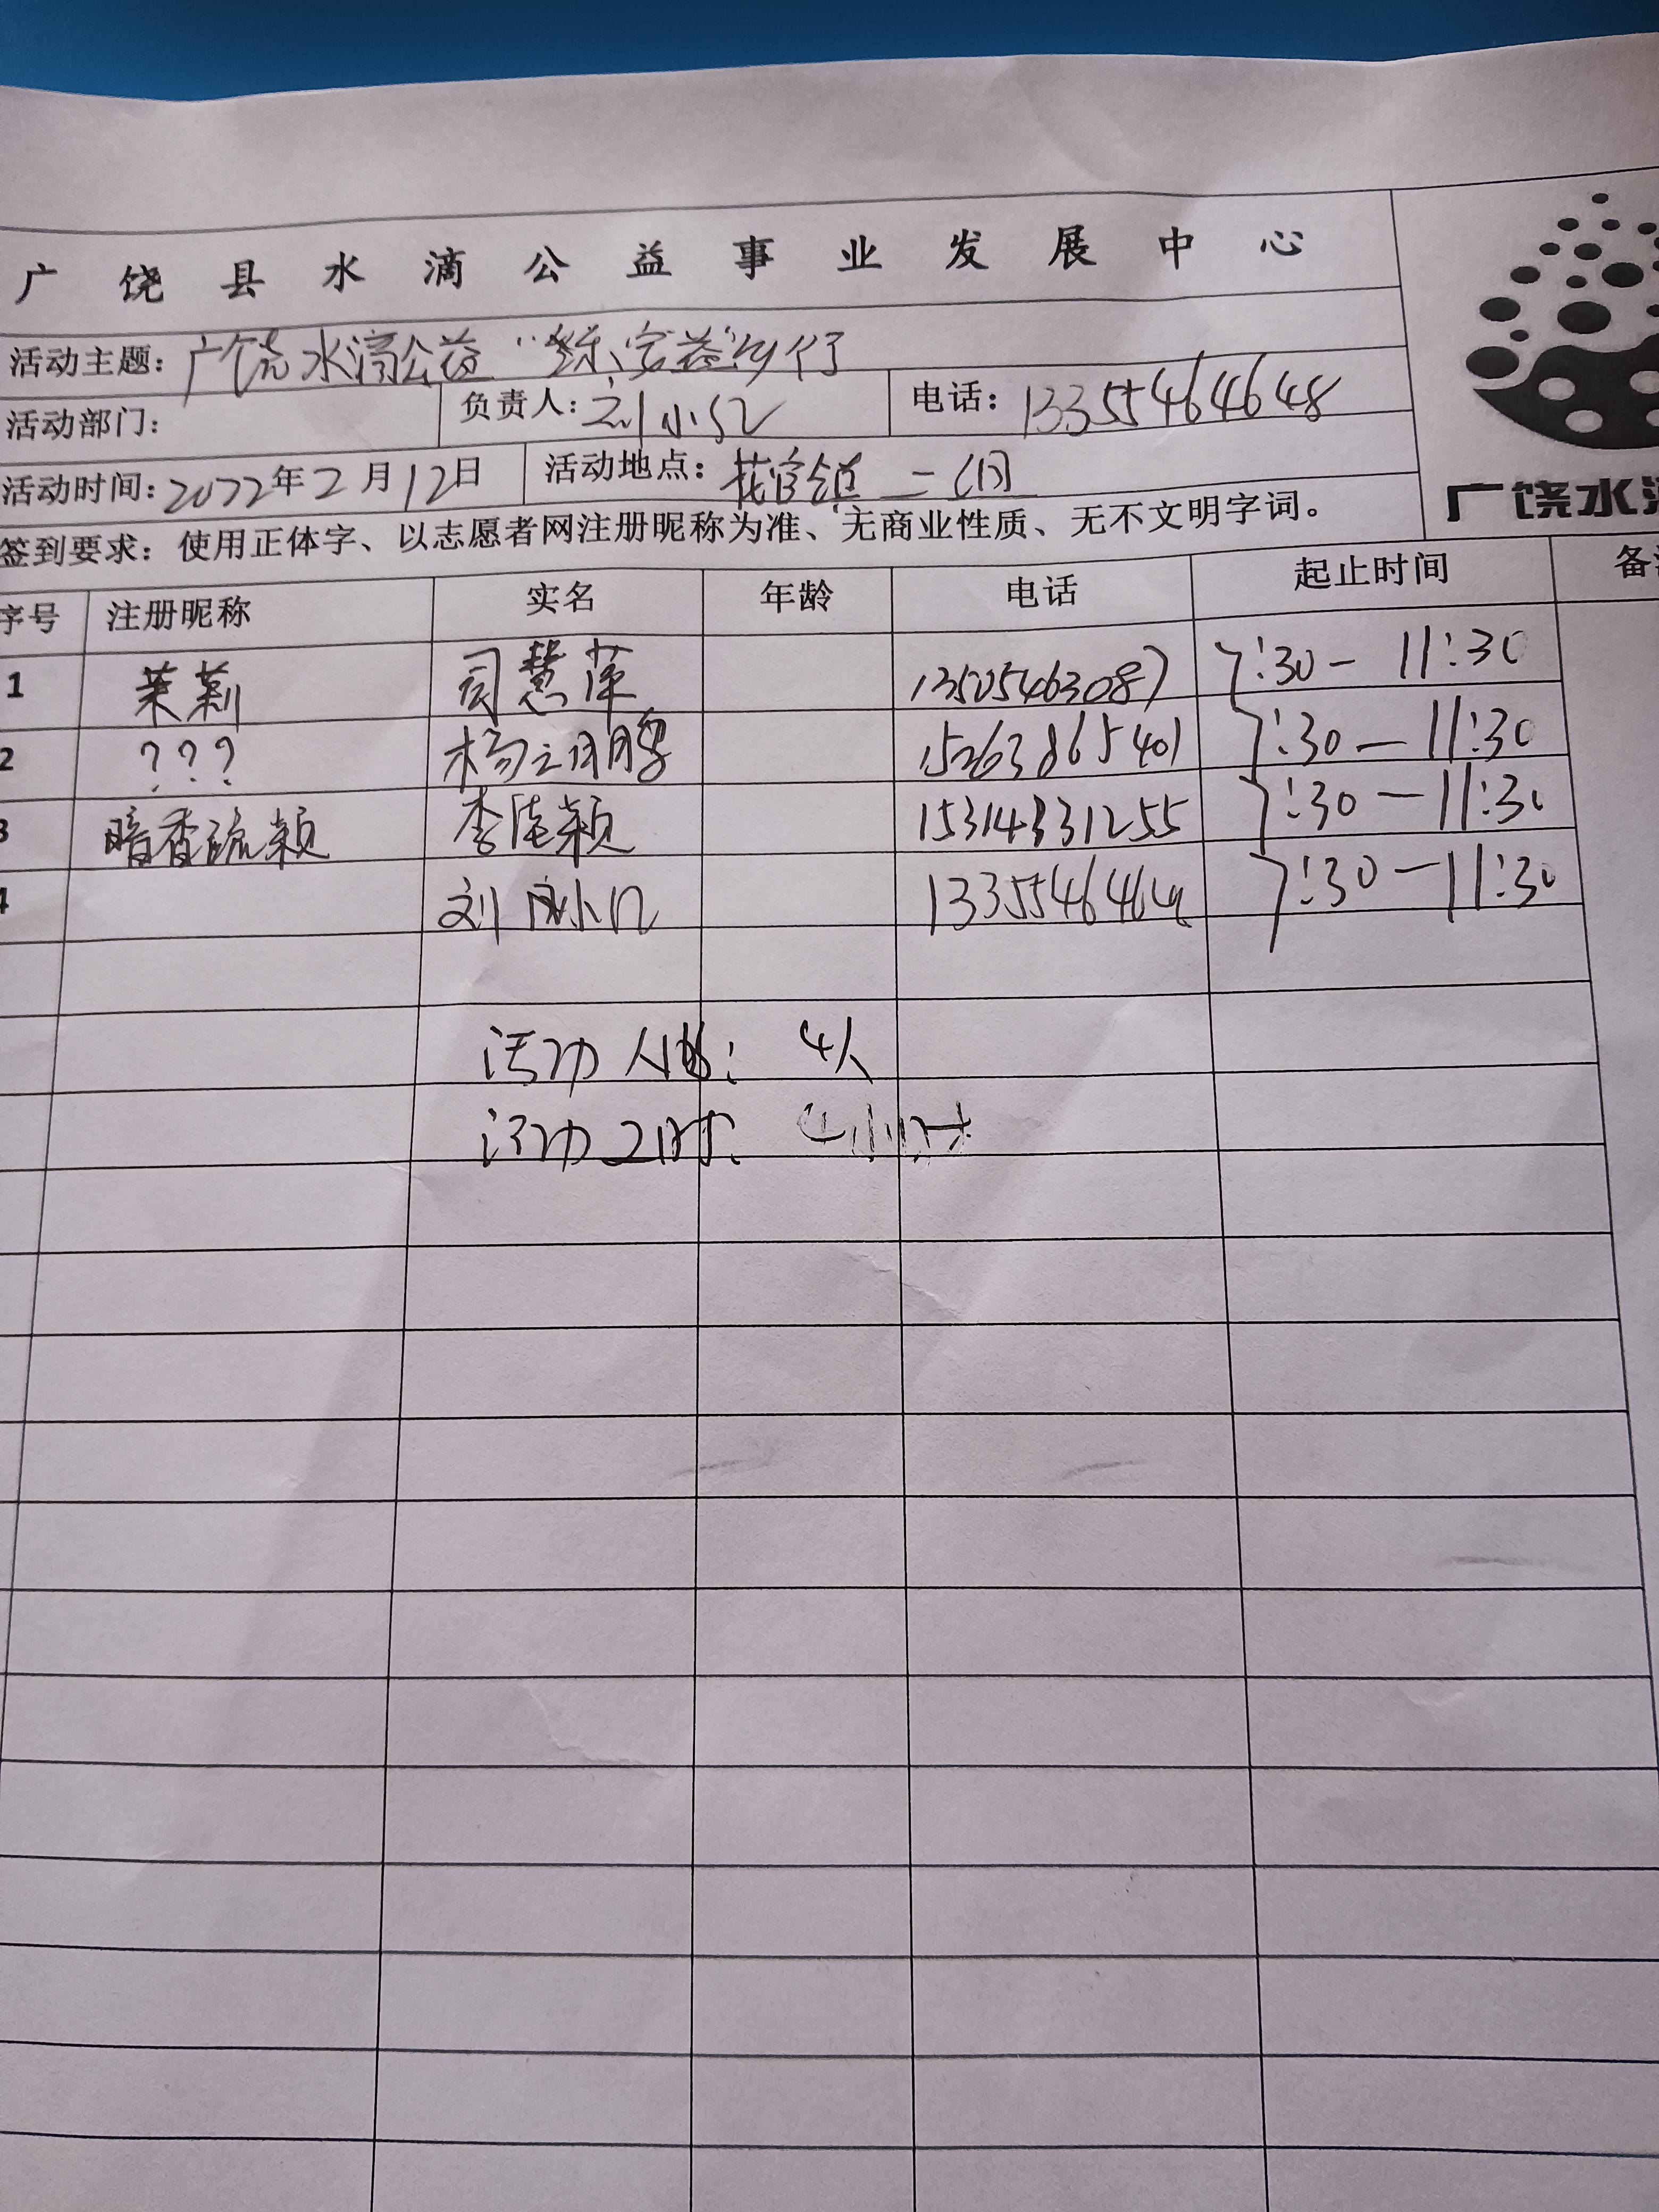 广饶县水滴公益事业发展中心
活动主题：广饶水滴公益
活动部门： 负责人：刘小红 电话：13355464648
活动时间：2022年2月12日 活动地点：花官镇
广饶水滴
签到要求：使用正体字、以志愿者网注册昵称为准、无商业性质、无不文明字词。
序号 注册昵称 实名 年龄 电话 起止时间 备注
1 茉莉 司慧萍 13505463087 7:30－11:30
2 ??? 杨 15263865401 7:30－11:30
3 暗香疏颖 李 颖 15314331255 7:30－11:30
4 刘 小红 7:30－11:30
活动人数：4人
活动工时：4小时